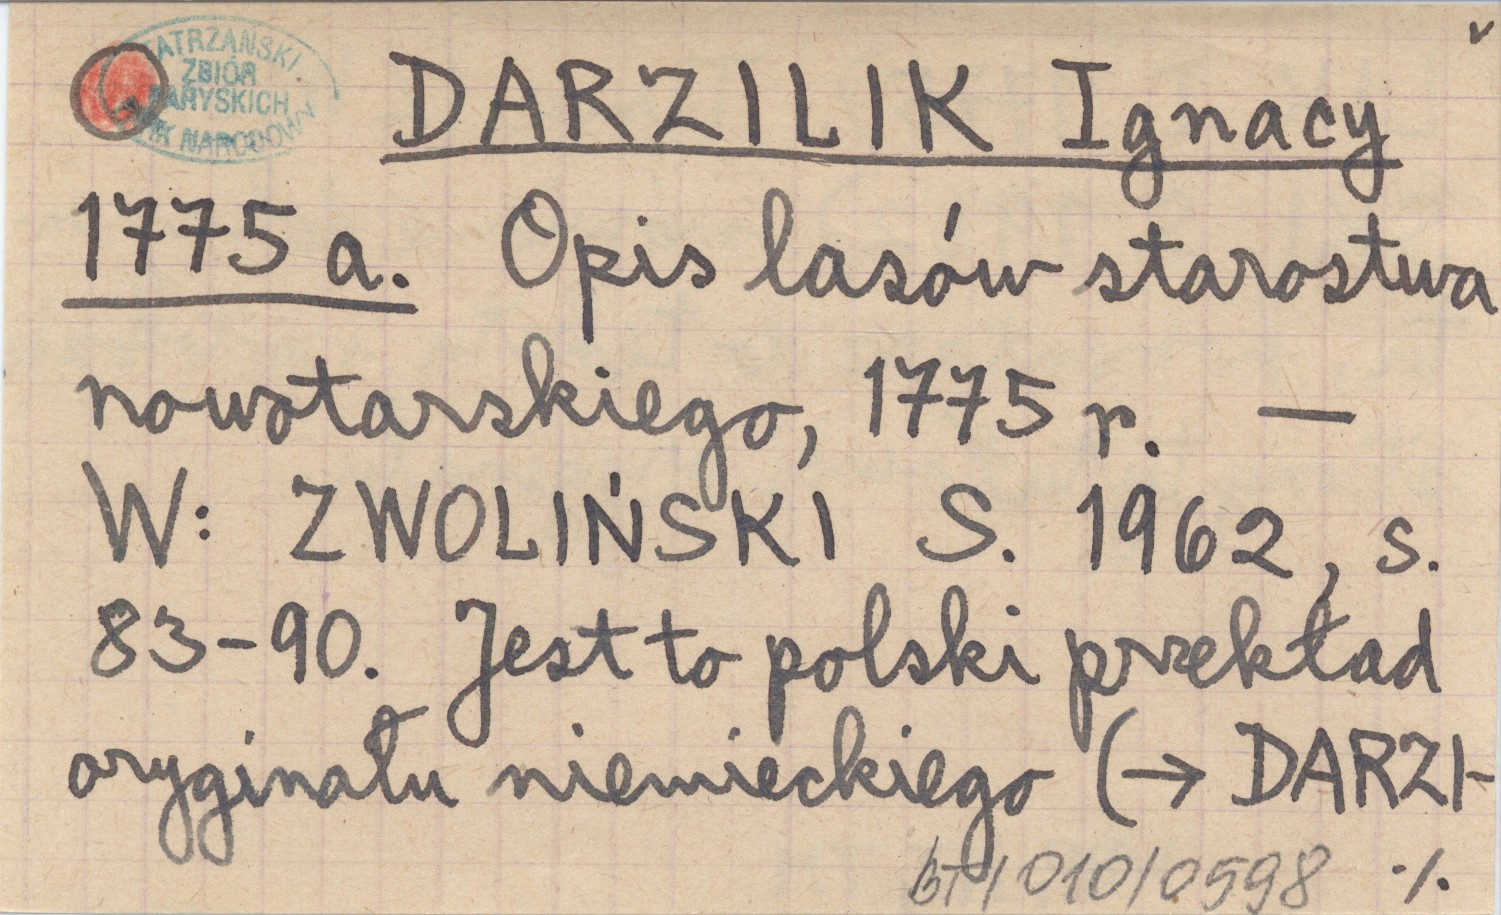 TATRZAŃSKI
ZBIÓR
PARYSKICH
PARK NARODOWY
DARZILIK Ignacy
1775 a. Opis lasów starostwa
nowotarskiego, 1775 r. —
W: ZWOLIŃSKI S. 1962, s.
83-90. Jest to polski przekład
oryginału niemieckiego (→ DARZI-
bT/010/0598 ./.